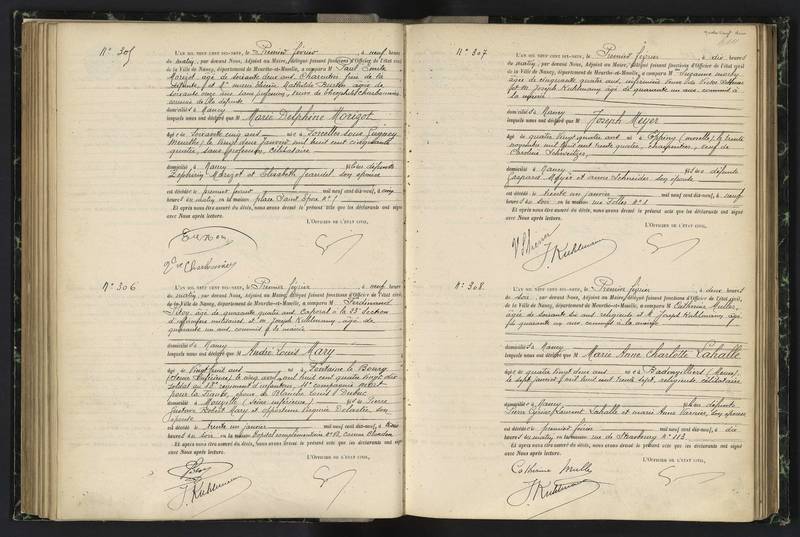 N° 305
L'AN MIL NEUF CENT DIX-NEUF, le Premier février à neuf heures
du matin, par devant Nous, Adjoint au Maire, délégué faisant fonctions d'Officier de l'état civil
de la Ville de Nancy, département de Meurthe-et-Moselle, a comparu M Paul Emile
Marizot, âgé de soixante deux ans, Charentier, frère de la
défunte, et Me
soixante onze ans, sans profession, veuve de Théophile Charbonnier,
amie de la défunte
domicilié à Nancy
lesquels nous ont déclaré que M Marie Delphine Marizot
âgé de soixante cinq ans né à Sorcelles sous
le vingt deux janvier mil huit cent cinquante
quatre, sans profession, célibataire
domicilié à Nancy fille des défunts
Zéphirin Marizot et Elisabeth Jeandel son épouse
est décédé le premier février mil neuf cent dix-neuf, à cinq
heures du matin, en la maison place Saint Epvre N° 1
Et après nous être assuré du décès, nous avons dressé le présent acte que les déclarants ont signé
avec Nous après lecture.
L'OFFICIER DE L'ÉTAT CIVIL,
Vve Charbonnier
N° 306
L'AN MIL NEUF CENT DIX-NEUF, le Premier février à neuf heures
du matin, par devant Nous, Adjoint au Maire, délégué faisant fonctions d'Officier de l'état civil
de la Ville de Nancy, département de Meurthe-et-Moselle, a comparu M Ferdinand
âgé de quarante ans, Caporal à la 23e Section
d'infirmiers militaires, et M Joseph Kuhlmann, âgé de
quarante un ans, commis à la mairie
domicilié à Nancy
lesquels nous ont déclaré que M André Louis Mary
âgé de vingt huit ans né à Fontaine le Bourg
(Seine Inférieure) le cinq avril mil huit cent quatre vingt dix
Soldat au régiment d'infanterie, 11e compagnie, mort
pour la France, époux de Blanche Louise Dubuc
domicilié à (Seine inférieure) fils de Pierre
Gustave Robert Mary et Virginie son
épouse
est décédé le trente un janvier mil neuf cent dix-neuf, à trois
heures du soir, en la maison hopital complémentaire N°
Et après nous être assuré du décès, nous avons dressé le présent acte que les déclarants ont signé
avec Nous après lecture.
L'OFFICIER DE L'ÉTAT CIVIL,
J. Kuhlmann
N° 307
L'AN MIL NEUF CENT DIX-NEUF, le Premier février à dix heures
du matin, par devant Nous, Adjoint au Maire, délégué faisant fonctions d'Officier de l'état civil
de la Ville de Nancy, département de Meurthe-et-Moselle, a comparu M Suzanne
âgée de cinquante quatre ans, infirmière,
et M. Joseph Kuhlmann âgé de quarante un ans, commis à
la mairie
domicilié à Nancy
lesquels nous ont déclaré que M Joseph Meyer
âgé de quatre vingt quatre ans né à (Moselle) le trente
novembre mil huit cent trente quatre, charpentier, veuf de
Caroline Schweitzer,
domicilié à Nancy fils des défunts
Gaspard Meyer et Anne Schneider son épouse
est décédé le trente un janvier mil neuf cent dix-neuf, à neuf
heures du soir en la maison rue N° 1
Et après nous être assuré du décès, nous avons dressé le présent acte que les déclarants ont signé
avec Nous après lecture.
L'OFFICIER DE L'ÉTAT CIVIL,
J. Kuhlmann
N° 308
L'AN MIL NEUF CENT DIX-NEUF, le Premier février à deux heures
du soir, par devant Nous, Adjoint au Maire, délégué faisant fonctions d'Officier de l'état civil,
de la Ville de Nancy, département de Meurthe-et-Moselle, a comparu M Catherine Muller,
âgée de soixante six ans, religieuse et M. Joseph Kuhlmann, âgé
de quarante un ans, commis à la mairie
domicilié à Nancy
lesquels nous ont déclaré que M Marie Anne Charlotte Lahalle
âgé de quatre vingt deux ans né à Badonvilliers (Meuse)
le sept janvier mil huit cent trente sept, religieuse célibataire
domicilié à Nancy fille des défunts
Pierre Cyriac Laurent Lahalle et Marie Anne Varnier, son épouse
est décédé le premier février mil neuf cent dix-neuf, à dix
heures du matin, en la maison rue de Strasbourg N° 113
Et après nous être assuré du décès, nous avons dressé le présent acte que les déclarants ont signé
avec Nous après lecture.
L'OFFICIER DE L'ÉTAT CIVIL,
Catherine Muller
J. Kuhlmann